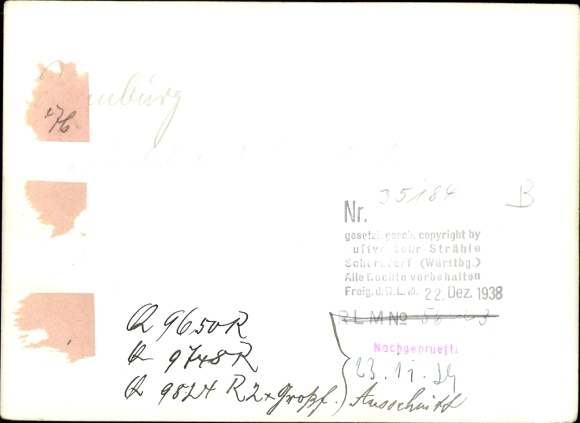 nburg
176
Nr. 35184 B
gesetzl. gesch. copyright by
Luftverkehr Strähle
Schorndorf (Württbg.)
Alle Rechte vorbehalten
Freig. d. R.L.M. 22. Dez. 1938
R L M No
Nachgeprueft:
Q 9650R
Q 9748R
Q 9824 R 2x Großf. Ausschnitt